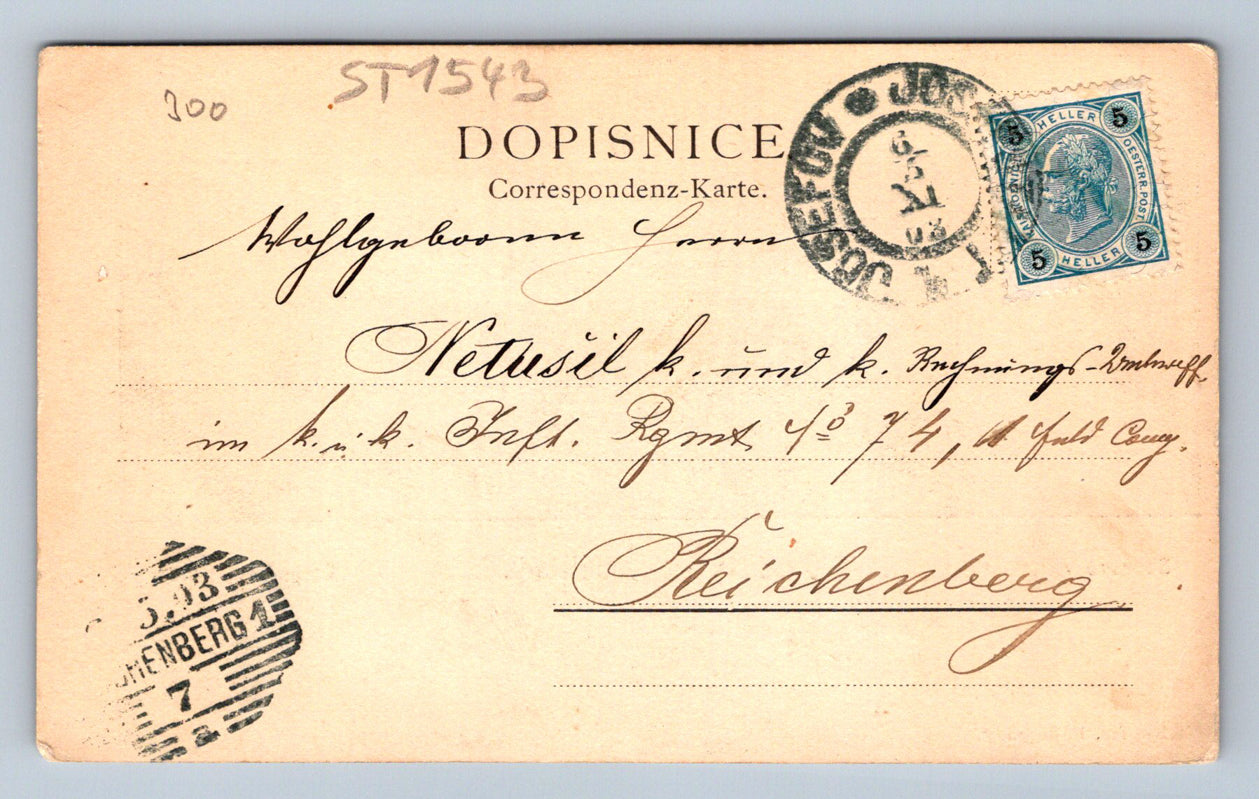 ST1543
300
DOPISNICE
Correspondenz-Karte.
JOSEFOV
03
5 HELLER 5
OESTERR. POST.
5 HELLER 5
Wohlgeboren Herrn
Netušil k. und k. Rechnungs-
im k. u. k. Inft. Rgmt No 74, 11 Feld Comp.
Reichenberg
5.03
CHENBERG 1
7
a